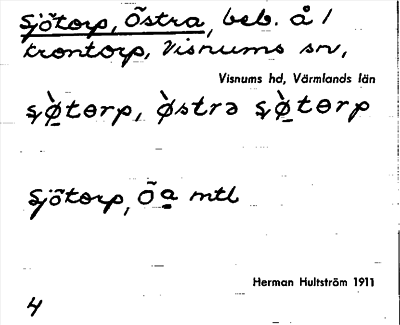 Sjötorp, Östra, beb. å /
trontorp, Visnums sn,
Visnums hd, Värmlands län
ȿø̀tɵrp, ø̀strə ȿø̀tɵrp
Sjötorp, Öa mtl
Herman Hultström 1911
4